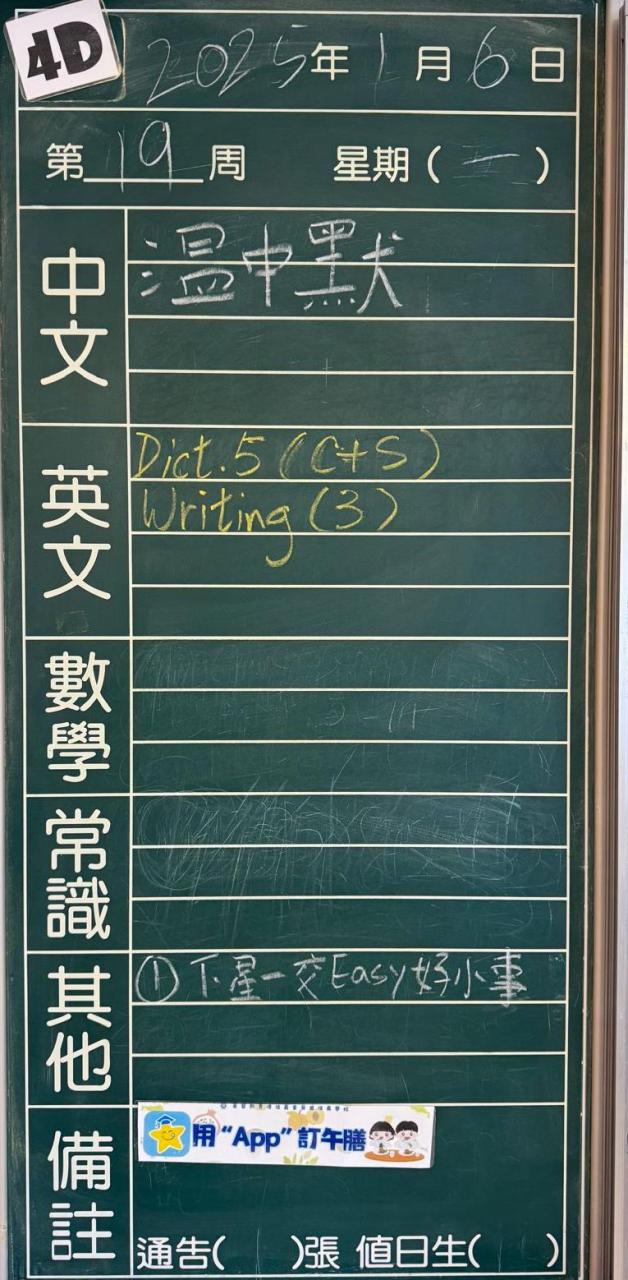 4D
2025年1月6日
第19周 星期(一)
中文
溫中默
英文
Dict.5 (C+S)
Writing (3)
數學
常識
其他
① 下星一交Easy好小事
備註
用“App”訂午膳
通告( )張 值日生( )